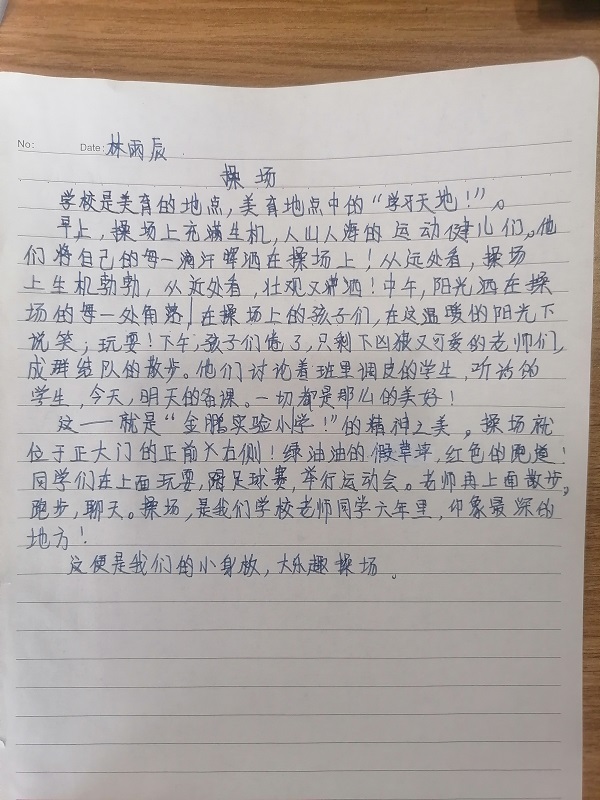 No:
Date: 林雨辰
操场
学校是美育的地点，美育地点中的“学习天地！”。
早上，操场上充满生机，人山人海的运动健儿们。他
们将自己的每一滴汗挥洒在操场上！从远处看，操场
上生机勃勃，从近处看，壮观又潇洒！中午，阳光洒在操
场的每一处角落！在操场上的孩子们，在这温暖的阳光下
说笑；玩耍！下午，孩子们倦了，只剩下凶狠又可爱的老师们，
成群结队的散步。他们讨论着班里调皮的学生，听话的
学生，今天，明天的备课。一切都是那么的美好！
这一一就是“金鹏实验小学！”的精神之美。操场就
位于正大门的正前方右侧！绿油油的假草坪，红色的跑道！
同学们在上面玩耍，踢足球赛，举行运动会。老师再上面散步，
跑步，聊天。操场，是我们学校老师同学六年里，印象最深的
地方！
这便是我们的小身板，大乐趣操场。